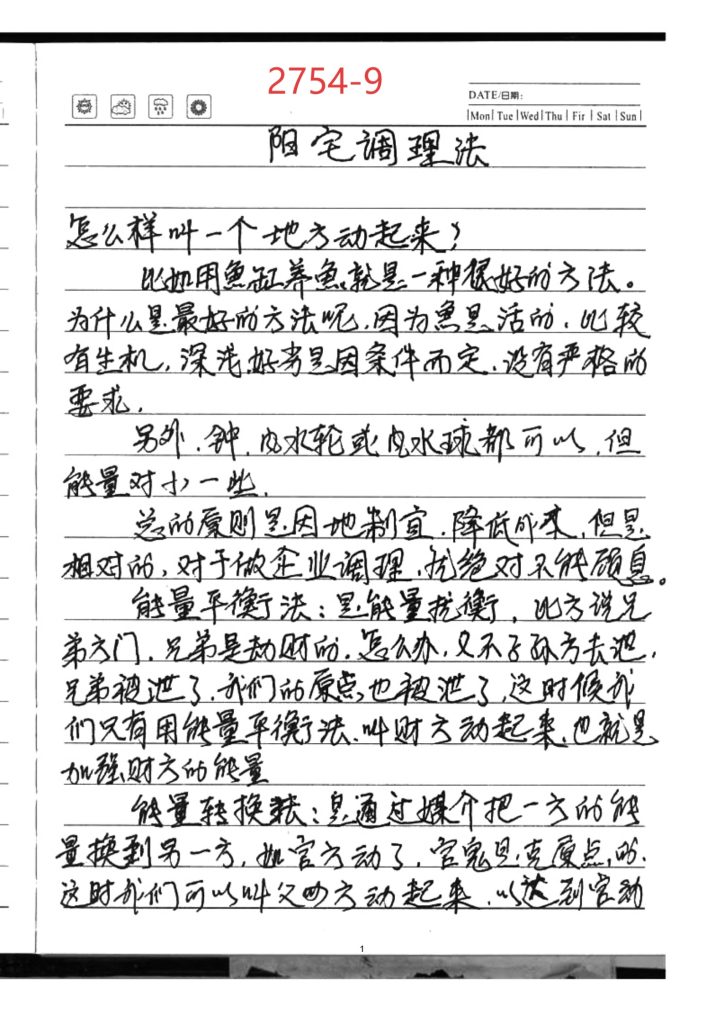 2754-9
DATE/日期:
Mon Tue Wed Thu Fir Sat Sun
阳宅调理法
怎么样叫一个地方动起来?
比如用鱼缸养鱼,就是一种很好的方法。
为什么是最好的方法呢,因为鱼是活的,比较
有生机,深浅好歹是因条件而定,没有严格的
要求.
另外.钟.内水轮或内水球都可以,但
能量对小一些.
总的原则是因地制宜.降低成本,但是
相对的,对于做企业调理,就绝对不能顾息。
能量平衡法:是能量抗衡,比方说兄
弟方门,兄弟是劫财的.怎么办,又不子孙方去泄,
兄弟被泄了,我们的原点也被泄了,这时候我
们只有用能量平衡法.叫财方动起来,也就是
加强财方的能量
能量转换法:是通过媒介把一方的能
量换到另一方,如官方动了,官鬼是克原点的.
这时我们可以叫父母方动起来.以达到官动
1